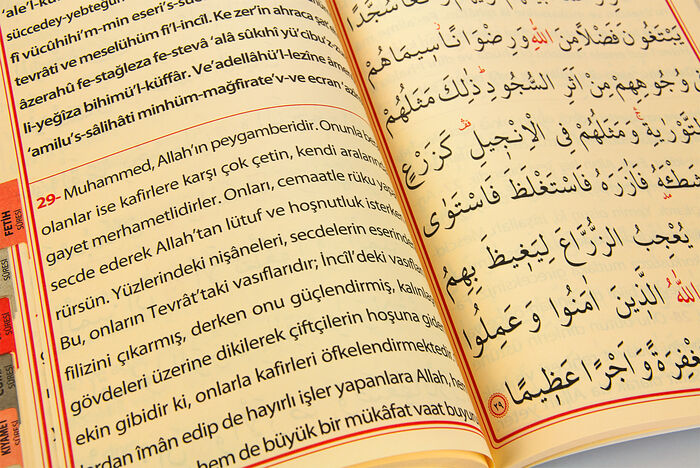 süccedey-yebteğûn
fî vücûhihi'm-min eseri's-
tevrâti ve meselühüm fi'l-incîl. Ke zer'in ahraca
âzerahû fe-stağleza fe-stevâ 'alâ sûkıhî yü'cibu'z-z
li-yeğîza bihimü'l-küffâr. Ve'adellâhü'l-lezîne âme
'amilu's-sâlihâti minhüm-mağfirate'v-ve ecran
29- Muhammed, Allah'ın peygamberidir. Onunla
olanlar ise kafirlere karşı çok çetin, kendi aralarınd
gayet merhametlidirler. Onları, cemaatle rükû yap
secde ederek Allah'tan lütuf ve hoşnutluk isterken
rürsün. Yüzlerindeki nişâneleri, secdelerin eserinde
Bu, onların Tevrât'taki vasıflarıdır; İncîl'deki vasıfla
filizini çıkarmış, derken onu güçlendirmiş, kalınla
gövdeleri üzerine dikilerek çiftçilerin hoşuna gide
ekin gibidir ki, onlarla kafirleri öfkelendirmektedir
lardan îmân edip de hayırlı işler yapanlara Allah, hem
hem de büyük bir mükâfat vaat buyu
FETİH
SÛRESİ
SÛRESİ
KIYAMET
سُجَّدًا
يَبْتَغُونَ فَضْلًا مِنَ اللّٰهِ وَرِضْوَانًا سِيمَاهُمْ
وُجُوهِهِمْ مِنْ اَثَرِ السُّجُودِ ذٰلِكَ مَثَلُهُمْ
التَّوْرٰيةِ وَمَثَلُهُمْ فِى الْاِنْجِيلِ كَزَرْعٍ
شَطْـَٔهُ فَاٰزَرَهُ فَاسْتَغْلَظَ فَاسْتَوٰى
يُعْجِبُ الزُّرَّاعَ لِيَغِيظَ بِهِمُ
اللّٰهُ الَّذِينَ اٰمَنُوا وَعَمِلُوا
مَغْفِرَةً وَاَجْرًا عَظِيمًا ٢٩